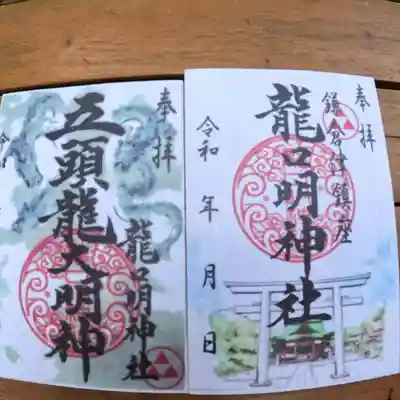 奉拝
鎌倉津鎮座
龍口明神社
令和 年 月 日
奉拝
五頭龍大明神
龍口明神社
令